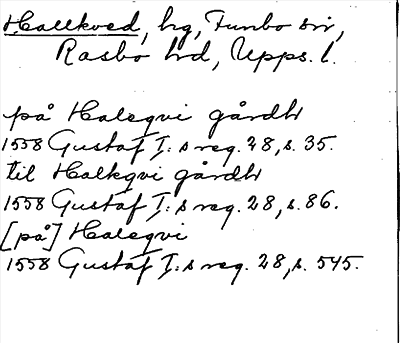 Hallkved, hg, Funbo sn,
Rasbo hd, Upps. l.
på Haleqvi gårdh
1558 Gustaf I:s reg. 28, s. 35.
til Halkqvi gårdh
1558 Gustaf I:s reg. 28, s. 86.
[på] Haleqvi
1558 Gustaf I:s reg. 28, s. 545.